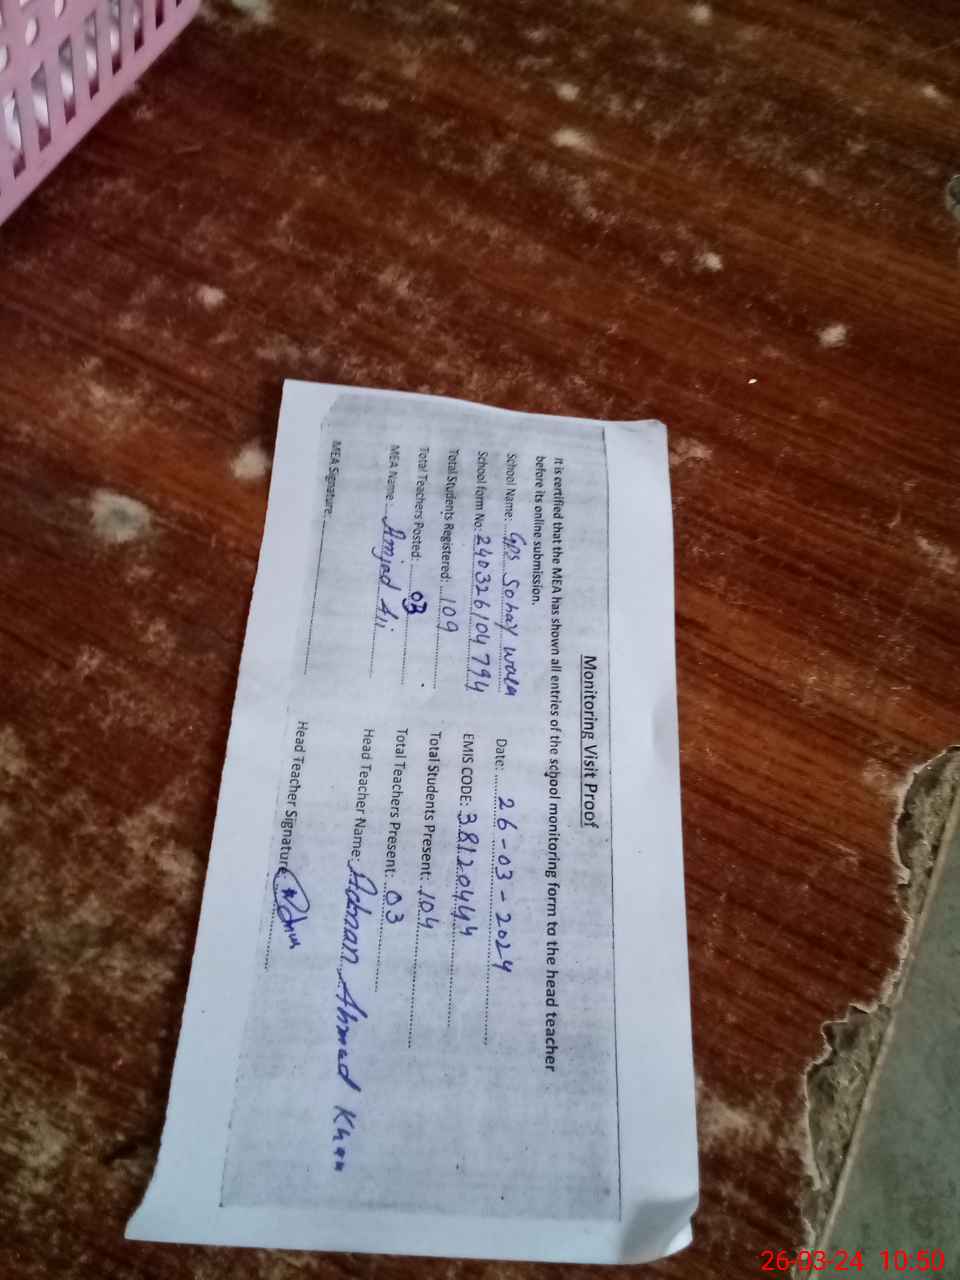 Monitoring Visit Proof
It is certified that the MEA has shown all entries of the school monitoring form to the head teacher
before its online submission.
School Name: GPS Sohay wala Date: 26-03-2024
School form No: 240326104794 EMIS CODE: 38120444
Total Students Registered: 109 Total Students Present: 104
Total Teachers Posted: 03 Total Teachers Present: 03
MEA Name: Amjad Ali Head Teacher Name: Adnan Ahmad Khan
MEA Signature: Head Teacher Signature:
26-03-24 10:50